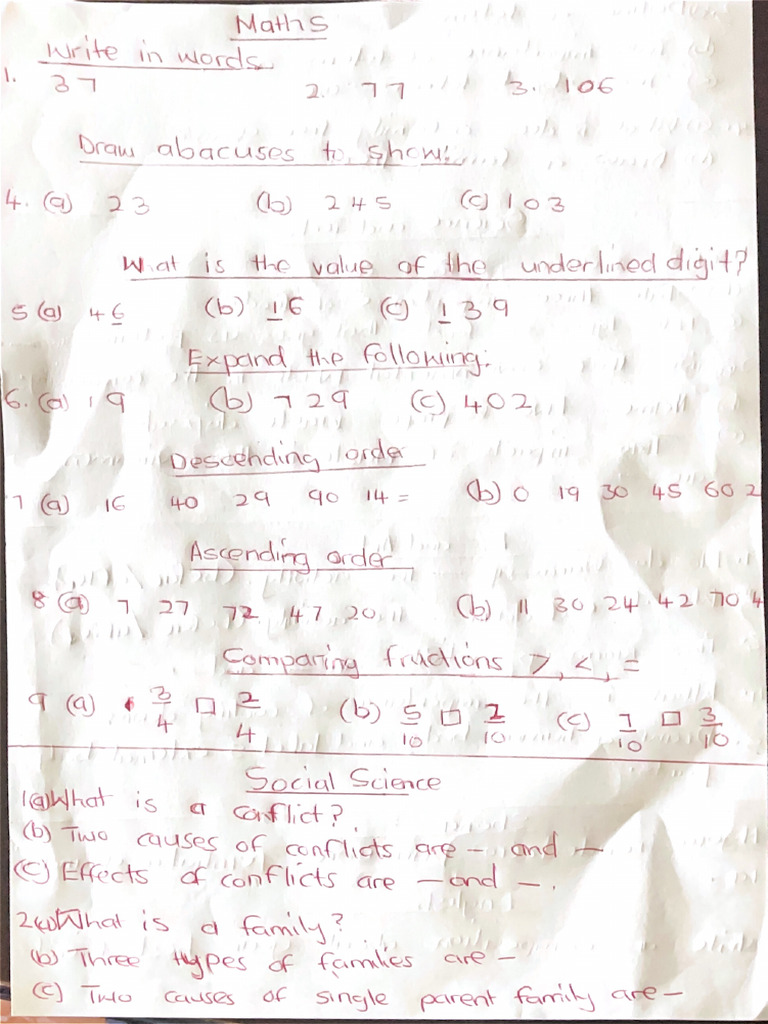 Maths
Write in words
1. 37 2. 77 3. 106
Draw abacuses to show:
4. (a) 23 (b) 245 (c) 103
What is the value of the underlined digit?
5 (a) 46 (b) 16 (c) 139
Expand the following:
6. (a) 19 (b) 729 (c) 402
Descending order
7 (a) 16 40 29 90 14 = (b) 0 19 30 45 60 2
Ascending order
8 (a) 7 27 72 47 20 (b) 11 30 24 42 70 4
Comparing fractions >, <, =
9 (a) 3/4 □ 2/4 (b) 5/10 □ 2/10 (c) 7/10 □ 3/10
Social Science
1(a) What is a conflict?
(b) Two causes of conflicts are - and -
(c) Effects of conflicts are - and -.
2(a) What is a family?
(b) Three types of families are -
(c) Two causes of single parent family are -